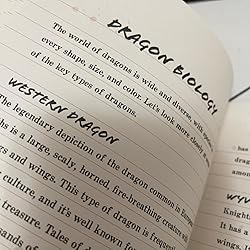 DRAGON BIOLOGY
The world of dragons is wide and diverse, with
every shape, size, and color. Let's look more closely
of the key types of dragons.
WESTERN DRAGON
The legendary depiction of the dragon common in
is a large, scaly, horned, fire-breathing creature
and wings. This type of dragon is
culture, and it's well known for
treasure. Tales of
has
WYV
Knigh
It has a
of wings